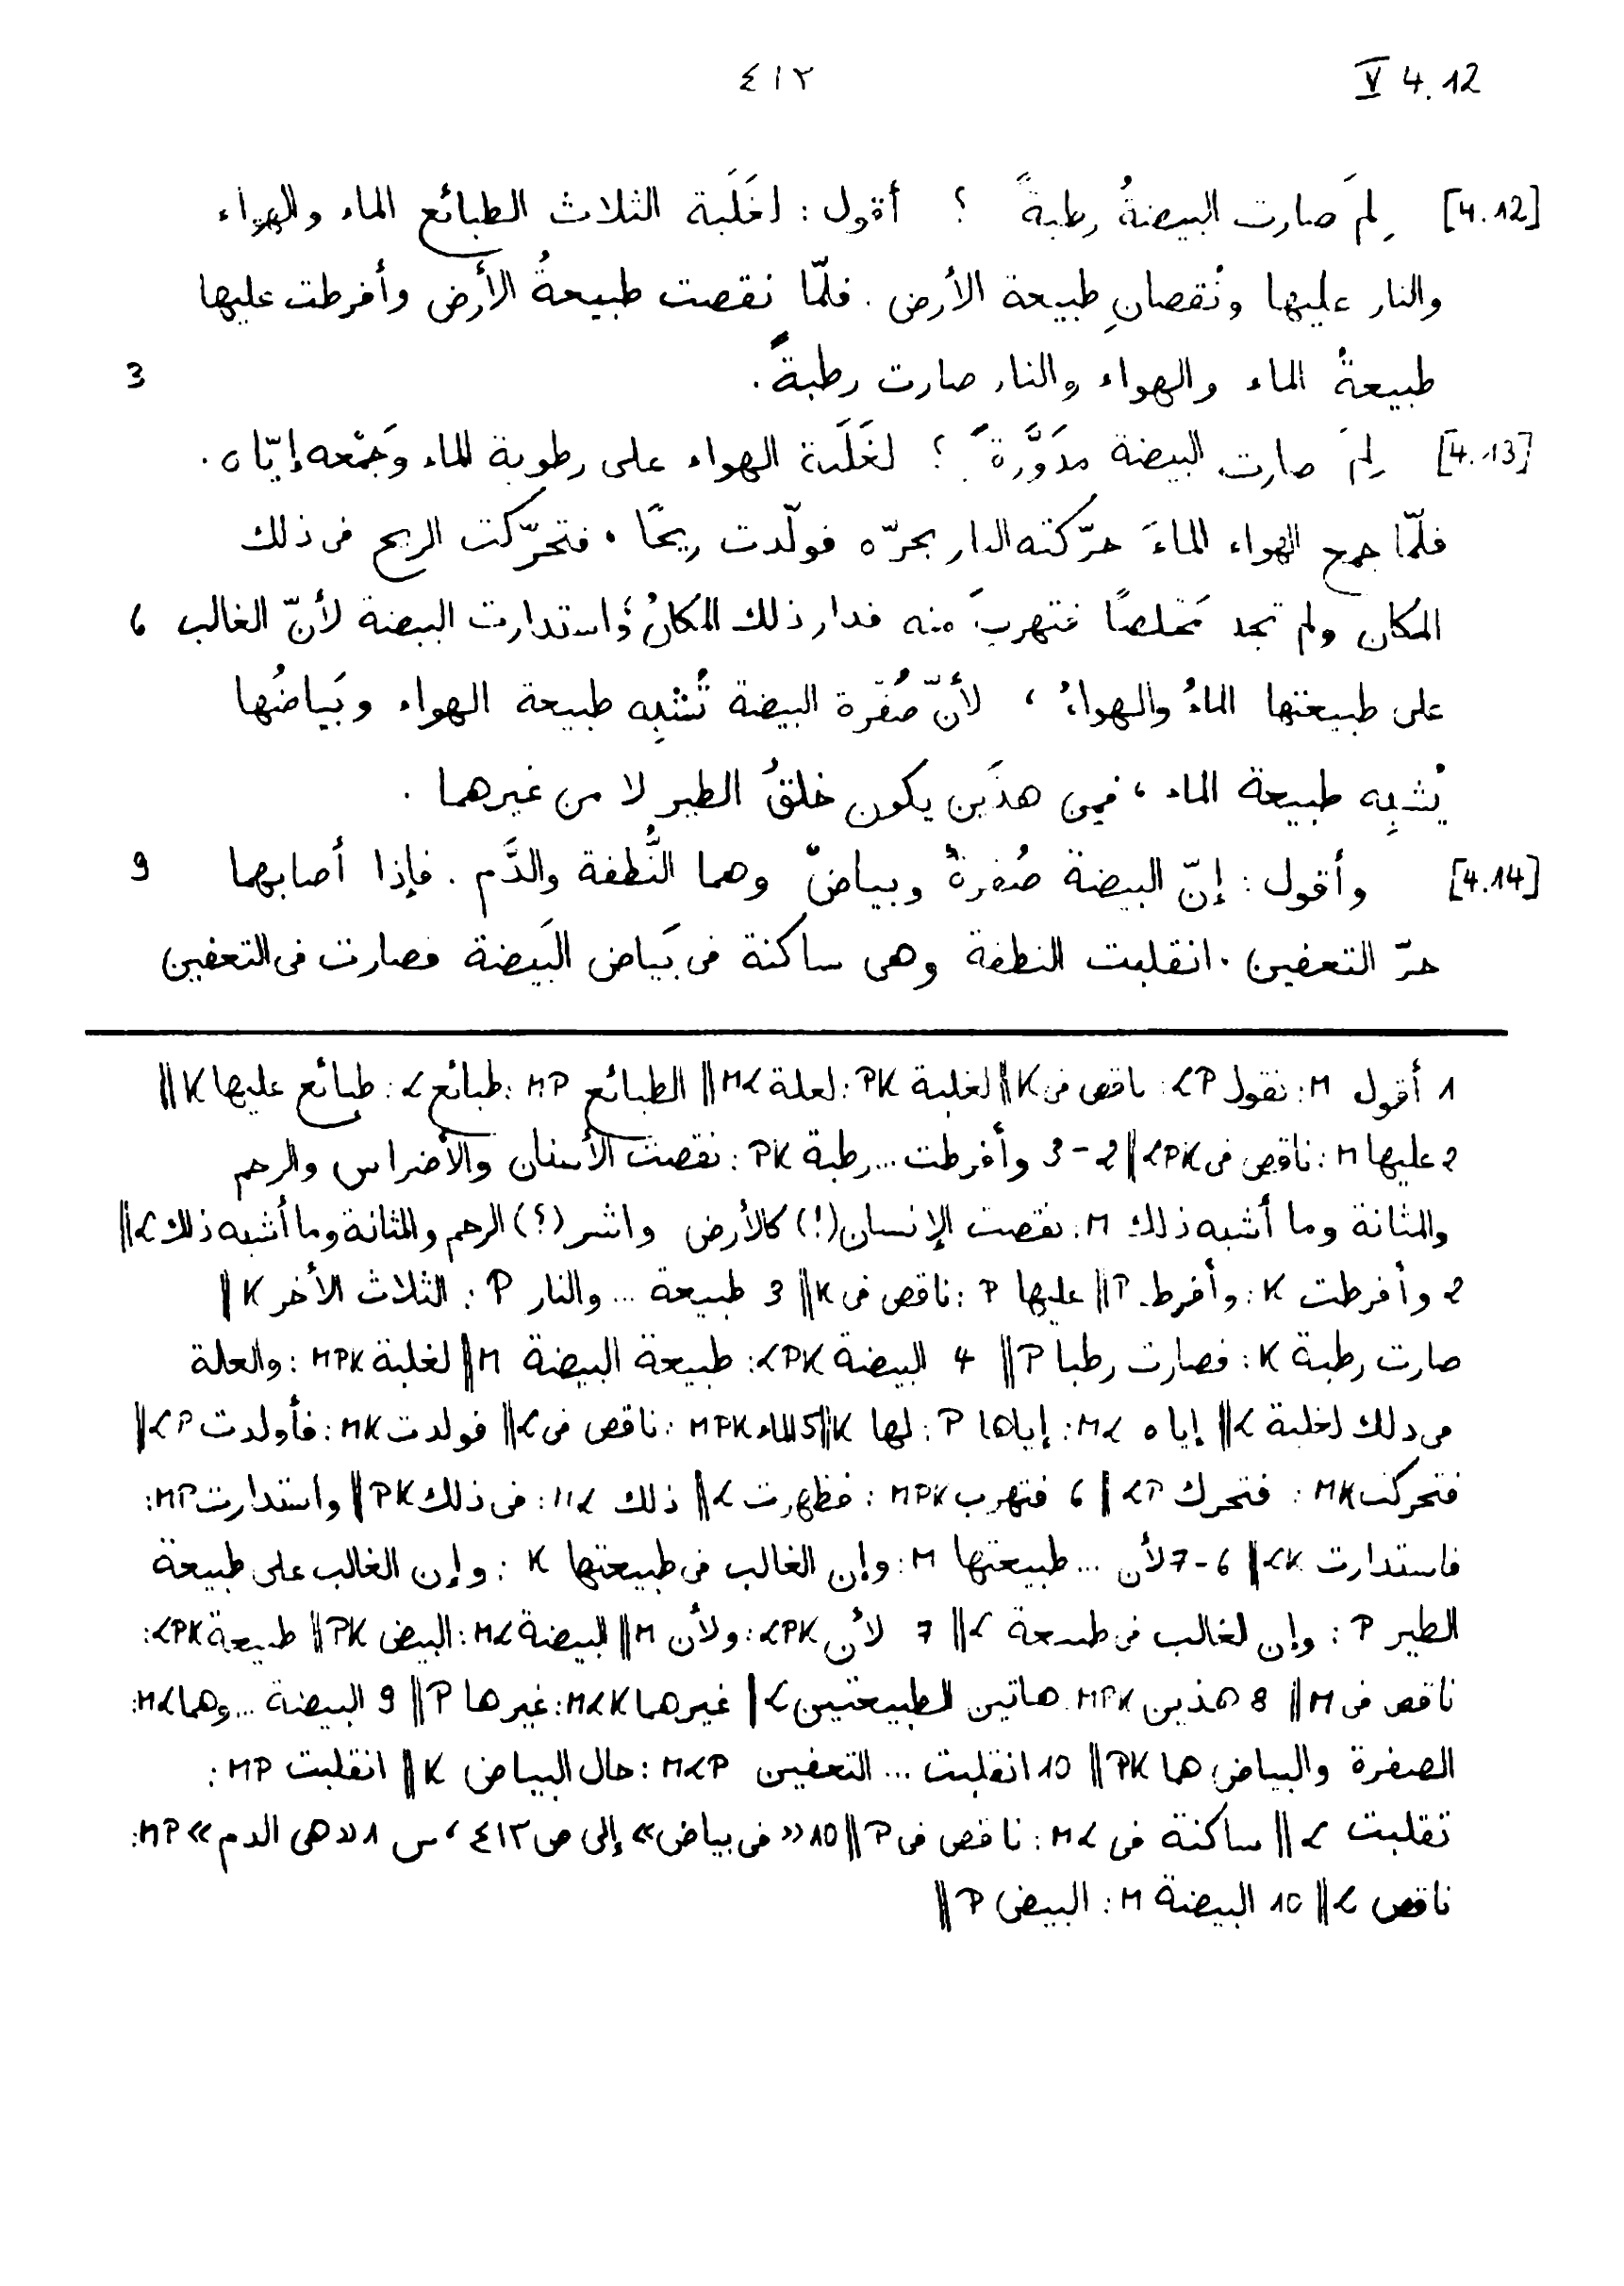 ٤١٢ V 4.12
[4.12] لِمَ صارت البيضةُ رطبةً ؟ أقول : لغَلَبة الثلاث الطبائع الماء والهواء
والنار عليها ونُقصانِ طبيعة الأرض . فلمّا نقصت طبيعةُ الأرض وأفرطت عليها
طبيعةُ الماء والهواء والنار صارت رطبةً . 3
[4.13] لِمَ صارت البيضة مدَوَّرةً ؟ لغَلَبة الهواء على رطوبة الماء وجَمْعه إيّاه .
فلمّا جمع الهواء الماءَ حرّكته النار بحرّه فولّدت ريحًا ، فتحرّكت الريح فى ذلك
المكان ولم تجد مَخلصًا فتهربَ منه فدار ذلك المكانُ واستدارت البيضة لأنّ الغالب 6
على طبيعتها الماءُ والهواءُ ، لأنّ صُفْرة البيضة تُشْبِه طبيعة الهواء وبَياضُها
يُشبِه طبيعة الماء ، فمِن هذَين يكون خلقُ الطير لا من غيرهما .
[4.14] وأقول : إنّ البيضة صُفرةٌ وبياضٌ وهما النُّطفة والدَّم . فإذا أصابهما 9
حرّ التعفين . انقلبت النطفة وهى ساكنة فى بَياض البَيضة فصارت فى التعفين
1 أقول M : نقول LP : ناقص فى K || لغلبة PK : لعلة ML || الطبائع MP : طبائع L : طبائع عليها K ||
2 عليها M : ناقص فى LPK || 2-3 وأفرطت ... رطبة PK : نقصت الأسنان والأضراس والرحم
والمثانة وما أشبه ذلك M : نقصت الإنسان (!) كالأرض واشر (؟) الرحم والمثانة وما أشبه ذلك L ||
2 وأفرطت K : وأفرط P || عليها P : ناقص فى K || 3 طبيعة ... والنار P : الثلاث الأخر K ||
صارت رطبة K : فصارت رطبا P || 4 البيضة LPK : طبيعة البيضة M || لغلبة MPK : والعلة
فى ذلك لغلبة L || إياه ML : إياها P : لها K || 5 الماء MPK : ناقص فى L || فولدت MK : فأولدت LP ||
فتحركت MK : فتحرك LP || 6 فتهرب MPK : فظهرت L || ذلك ML : فى ذلك PK || واستدارت MP :
فاستدارت LK || 6-7 لأن ... طبيعتها M : وإن الغالب فى طبيعتها K : وإن الغالب على طبيعة
الطير P : وإن لغالب فى طبيعة L || 7 لأن LPK : ولأن M || البيضة ML : البيض PK || طبيعة LPK :
ناقص فى M || 8 هذين MPK : هاتين الطبيعتين L || غيرهما MLK : غيرها P || 9 البيضة ... وهما ML :
الصفرة والبياض هما PK || 10 انقلبت ... التعفين MLP : حال البياض K || انقلبت MP :
تقلبت L || ساكنة فى ML : ناقص فى P || 10 «فى بياض» إلى ص ٤١٣ ، س 1 «هى الدم» MP :
ناقص L || 10 البيضة M : البيض P ||